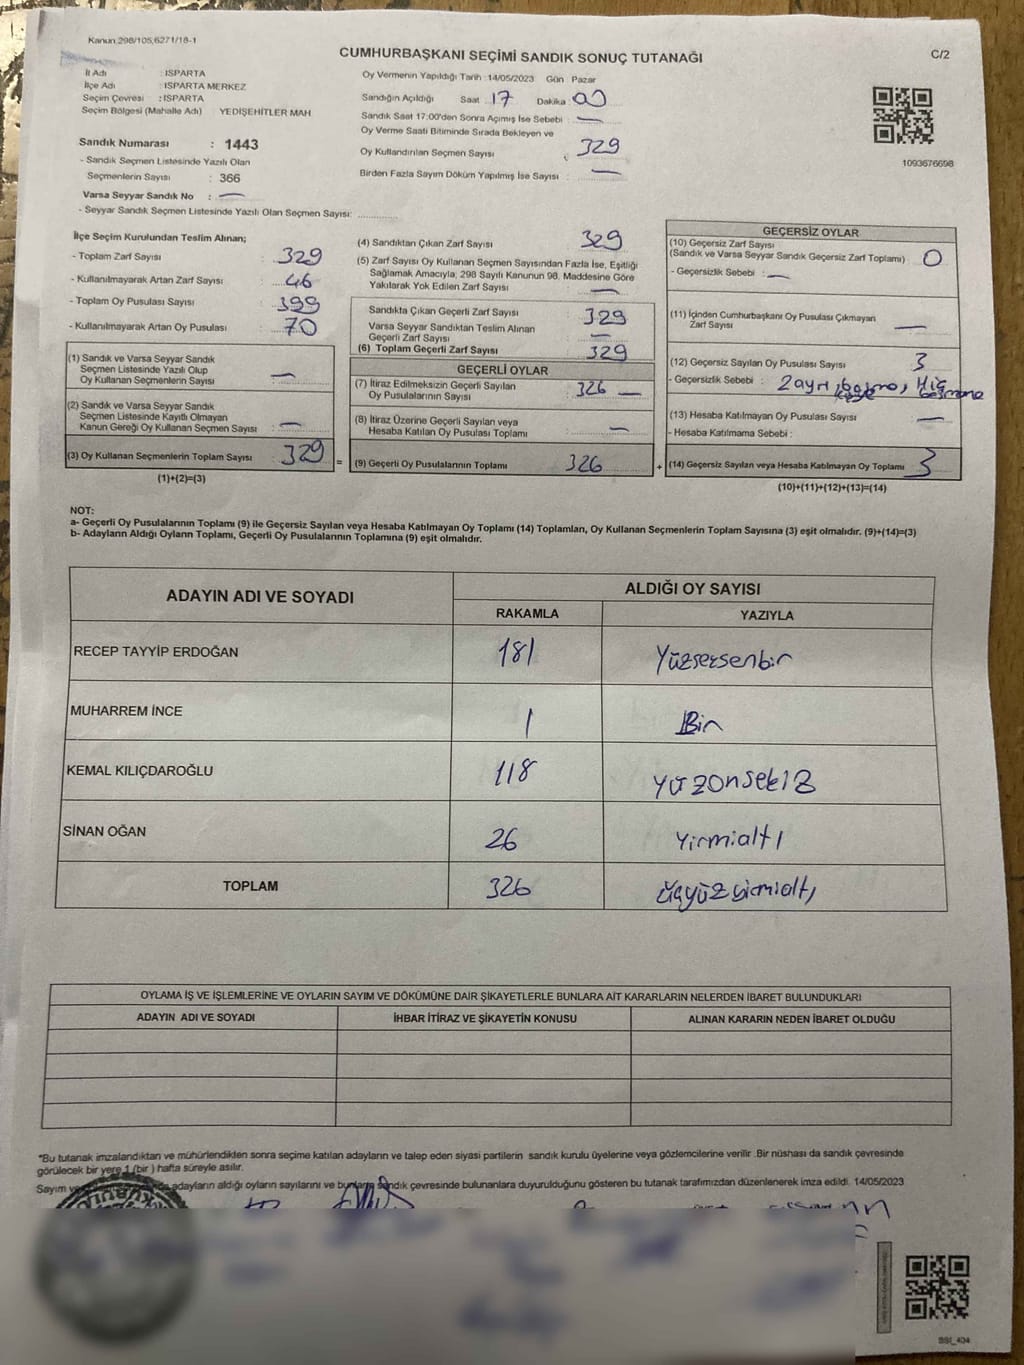 Kanun 298/105,6271/18-1
CUMHURBAŞKANI SEÇİMİ SANDIK SONUÇ TUTANAĞI
C/2
İl Adı : ISPARTA
İlçe Adı : ISPARTA MERKEZ
Seçim Çevresi : ISPARTA
Seçim Bölgesi (Mahalle Adı) YEDİŞEHİTLER MAH
Sandık Numarası : 1443
- Sandık Seçmen Listesinde Yazılı Olan
Seçmenlerin Sayısı : 366
Varsa Seyyar Sandık No : —
- Seyyar Sandık Seçmen Listesinde Yazılı Olan Seçmen Sayısı: ............
Oy Vermenin Yapıldığı Tarih :14/05/2023 Gün Pazar
Sandığın Açıldığı Saat 17 Dakika 00
Sandık Saat 17:00'den Sonra Açımış İse Sebebi : —
Oy Verme Saati Bitiminde Sırada Bekleyen ve
Oy Kullandırılan Seçmen Sayısı : 329
Birden Fazla Sayım Döküm Yapılmış İse Sayısı : —
1093676698
İlçe Seçim Kurulundan Teslim Alınan;
- Toplam Zarf Sayısı : 329
- Kullanılmayarak Artan Zarf Sayısı : 46
- Toplam Oy Pusulası Sayısı : 399
- Kullanılmayarak Artan Oy Pusulası : 70
(1) Sandık ve Varsa Seyyar Sandık
Seçmen Listesinde Yazılı Olup
Oy Kullanan Seçmenlerin Sayısı : —
(2) Sandık ve Varsa Seyyar Sandık
Seçmen Listesinde Kayıtlı Olmayan
Kanun Gereği Oy Kullanan Seçmen Sayısı : —
(3) Oy Kullanan Seçmenlerin Toplam Sayısı : 329
(1)+(2)=(3)
=
(4) Sandıktan Çıkan Zarf Sayısı 329
(5) Zarf Sayısı Oy Kullanan Seçmen Sayısından Fazla İse, Eşitliği
Sağlamak Amacıyla; 298 Sayılı Kanunun 98. Maddesine Göre
Yakılarak Yok Edilen Zarf Sayısı : —
Sandıkta Çıkan Geçerli Zarf Sayısı : 329
Varsa Seyyar Sandıktan Teslim Alınan
Geçerli Zarf Sayısı : —
(6) Toplam Geçerli Zarf Sayısı : 329
GEÇERLİ OYLAR
(7) İtiraz Edilmeksizin Geçerli Sayılan
Oy Pusulalarının Sayısı : 326 —
(8) İtiraz Üzerine Geçerli Sayılan veya
Hesaba Katılan Oy Pusulası Toplamı : —
(9) Geçerli Oy Pusulalarının Toplamı : 326
+
GEÇERSİZ OYLAR
(10) Geçersiz Zarf Sayısı
(Sandık ve Varsa Seyyar Sandık Geçersiz Zarf Toplamı) : 0
- Geçersizlik Sebebi : —
(11) İçinden Cumhurbaşkanı Oy Pusulası Çıkmayan
Zarf Sayısı : —
(12) Geçersiz Sayılan Oy Pusulası Sayısı : 3
- Geçersizlik Sebebi : 2 ayrı basma, Hiç
basmama
(13) Hesaba Katılmayan Oy Pusulası Sayısı : —
- Hesaba Katılmama Sebebi :
(14) Geçersiz Sayılan veya Hesaba Katılmayan Oy Toplamı : 3
(10)+(11)+(12)+(13)=(14)
NOT:
a- Geçerli Oy Pusulalarının Toplamı (9) ile Geçersiz Sayılan veya Hesaba Katılmayan Oy Toplamı (14) Toplamları, Oy Kullanan Seçmenlerin Toplam Sayısına (3) eşit olmalıdır. (9)+(14)=(3)
b- Adayların Aldığı Oyların Toplamı, Geçerli Oy Pusulalarının Toplamına (9) eşit olmalıdır.
ADAYIN ADI VE SOYADI
ALDIĞI OY SAYISI
RAKAMLA YAZIYLA
RECEP TAYYİP ERDOĞAN 181 Yüzseksenbir
MUHARREM İNCE 1 Bir
KEMAL KILIÇDAROĞLU 118 YÜZONSEKİZ
SİNAN OĞAN 26 Yirmialtı
TOPLAM 326 Üçyüzyirmialtı
OYLAMA İŞ VE İŞLEMLERİNE VE OYLARIN SAYIM VE DÖKÜMÜNE DAİR ŞİKAYETLERLE BUNLARA AİT KARARLARIN NELERDEN İBARET BULUNDUKLARI
ADAYIN ADI VE SOYADI İHBAR İTİRAZ VE ŞİKAYETİN KONUSU ALINAN KARARIN NEDEN İBARET OLDUĞU
*Bu tutanak imzalandıktan ve mühürlendikten sonra seçime katılan adayların ve talep eden siyasi partilerin sandık kurulu üyelerine veya gözlemcilerine verilir .Bir nüshası da sandık çevresinde
görülecek bir yere 1 (bir ) hafta süreyle asılır.
Sayım ve adayların aldığı oyların sayılarını ve bunların sandık çevresinde bulunanlara duyurulduğunu gösteren bu tutanak tarafımızdan düzenlenerek imza edildi. 14/05/2023
BSI_404